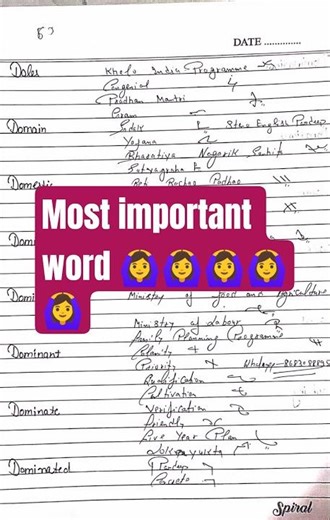 53
DATE ..............
Dales Khelo India Programme
Congenial
Pradhan Mantri
Param
Domain Sadak Steno English Pardeep
Yojana
Bharatiya Nagarik Sanhita
Satyagraha
Domestic Beti Bachao Padhao
Most important
word 🙆‍♀️🙆‍♀️🙆‍♀️🙆‍♀️
🙆‍♀️
Ministry of Food and Agriculture
Ministry of Labour
Family Planning Programme
Dominant Clarity
Priority
Qualification
Cultivation
Dominate Verification
Friendly
Five Year Plan
Lokpayukta
Dominated Pardeep
Spiral